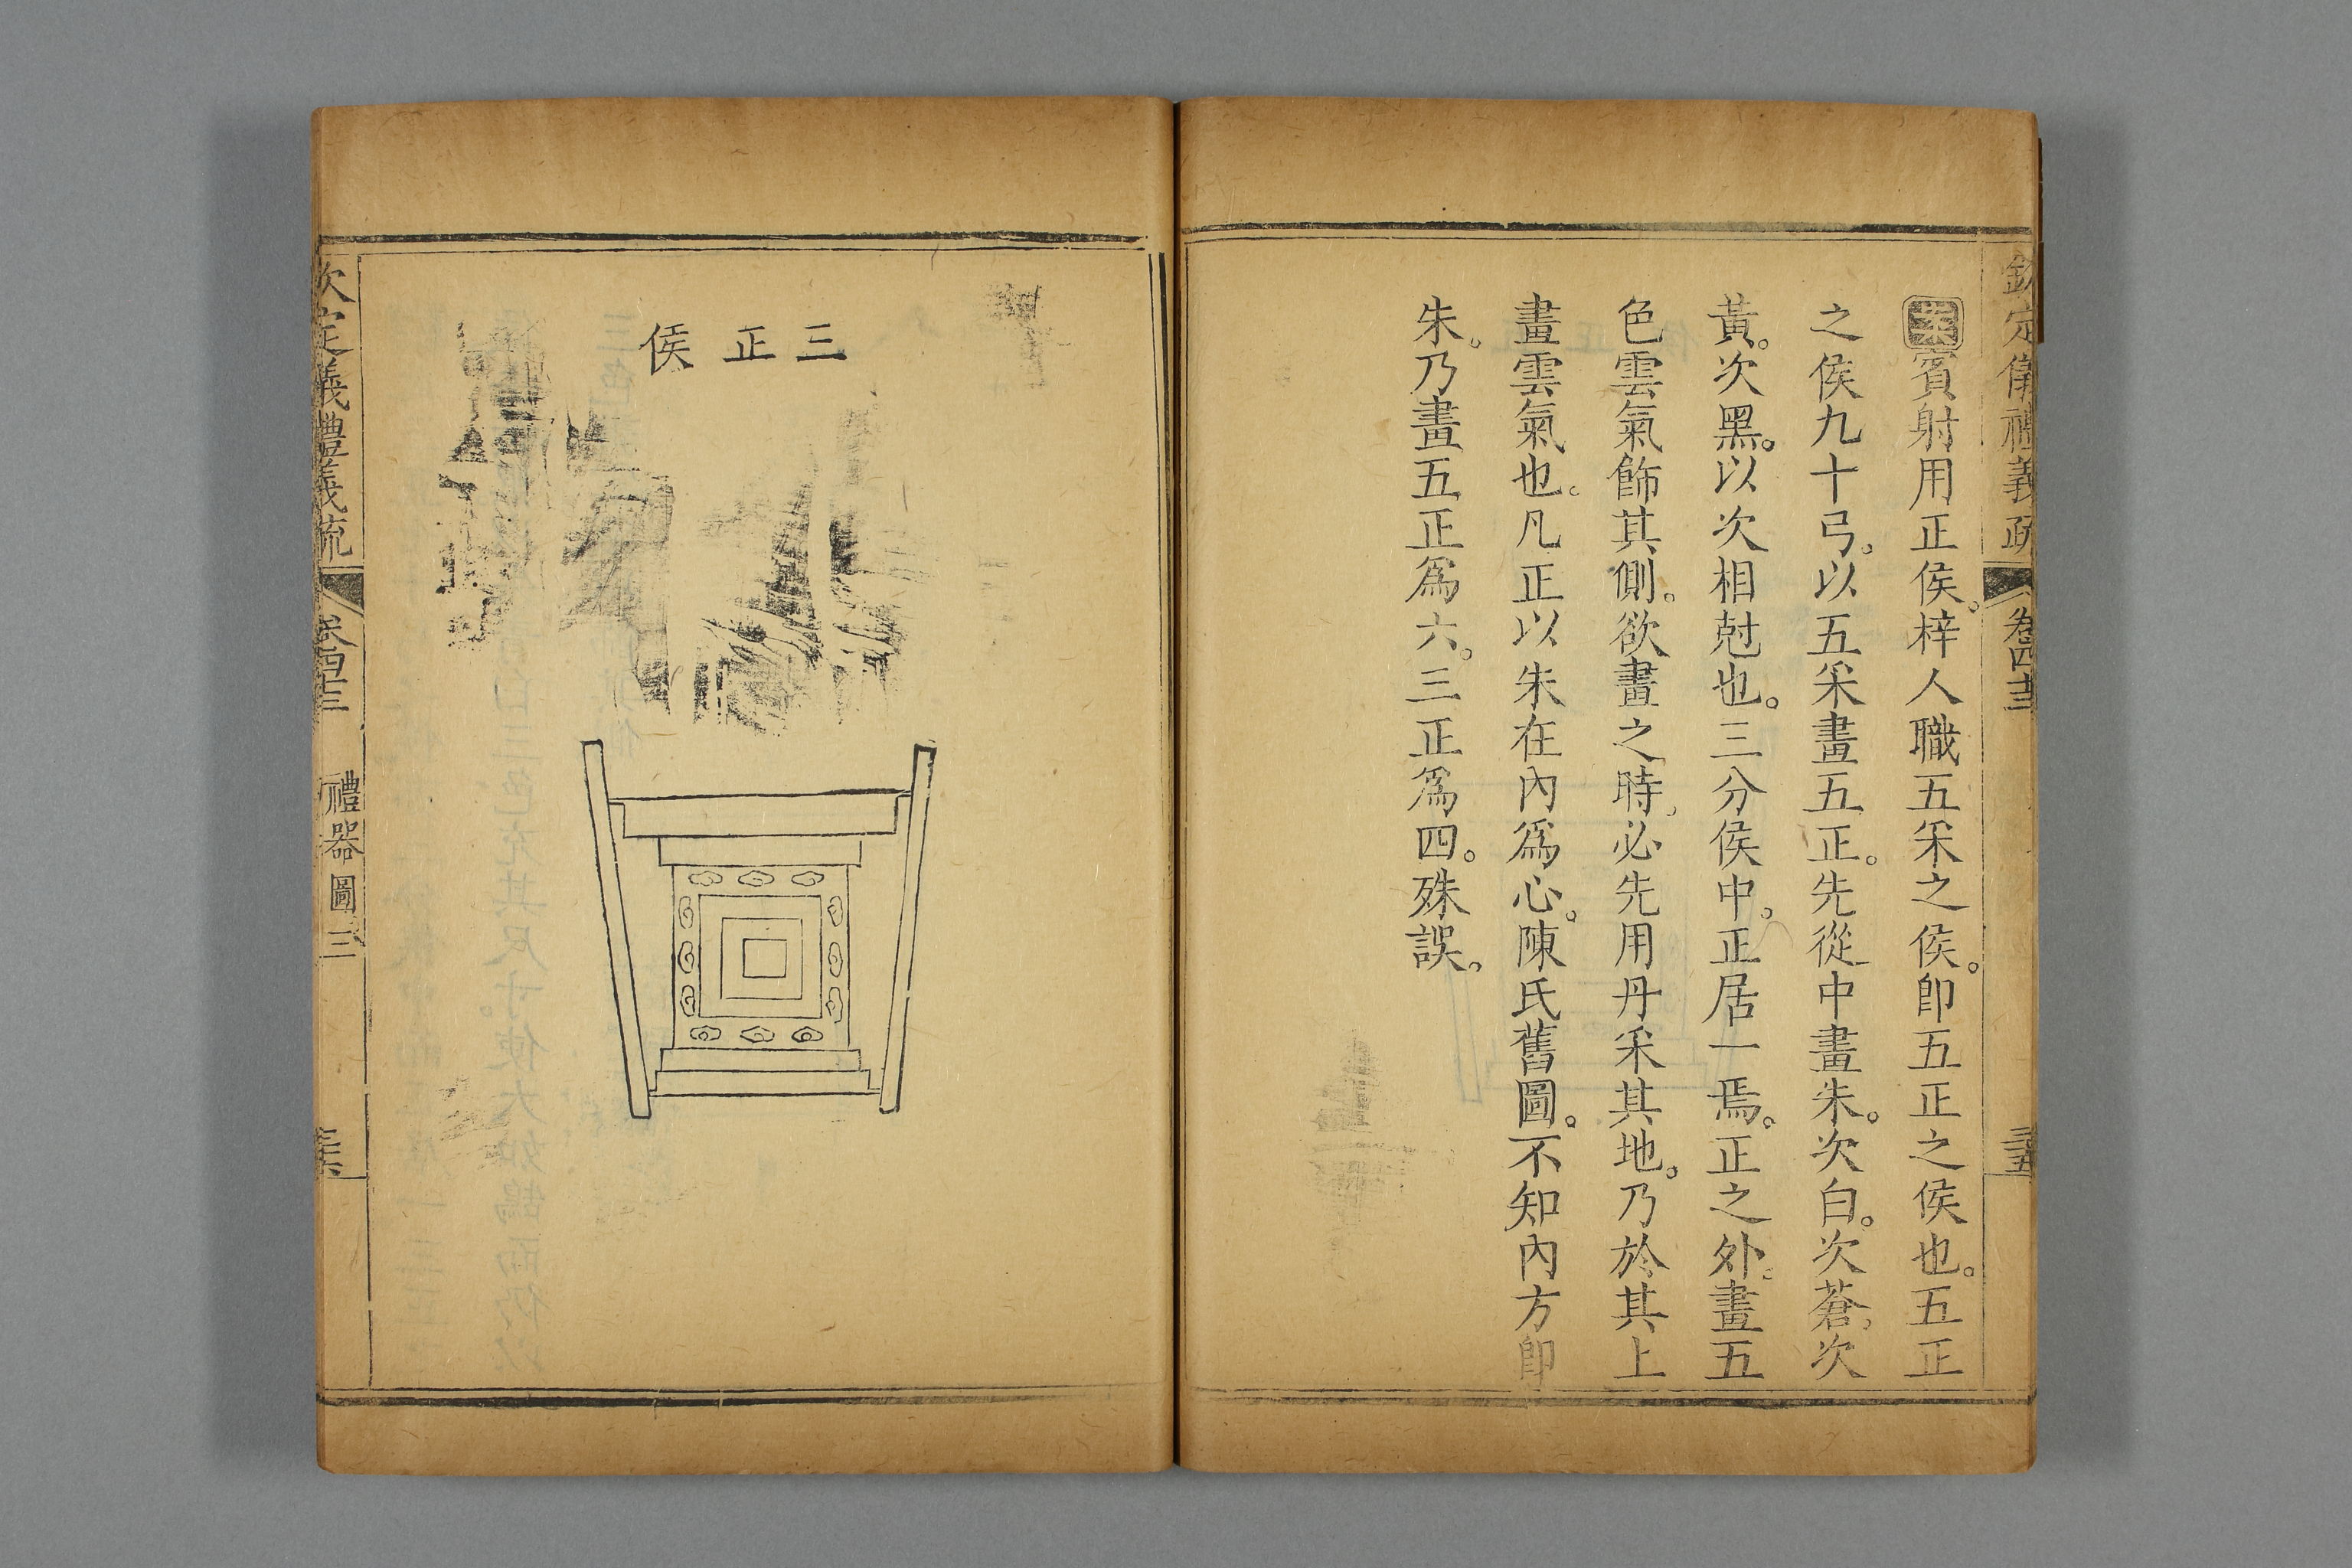 欽定儀禮義疏 卷四十三 三五
案賓射用正侯。梓人職五采之侯。卽五正之侯也。五正
之侯九十弓。以五采畫五正。先從中畫朱。次白。次蒼。次
黃。次黑。以次相尅也。三分侯中。正居一焉。正之外。畫五
色雲氣飾其側。欲畫之時。必先用丹采其地。乃於其上
畫雲氣也。凡正以朱在內爲心。陳氏舊圖。不知內方卽
朱。乃畫五正爲六。三正爲四。殊誤。
三正侯
欽定義禮義疏 卷四十三 禮器圖三